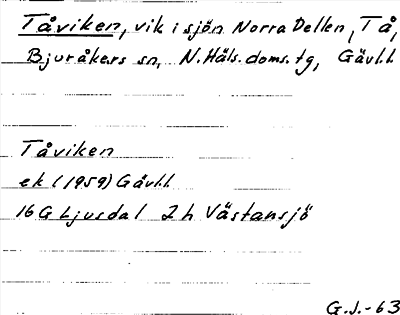 Tåviken, vik i sjön Norra Dellen, Tå,
Bjuråkers sn, N. Häls. doms. tg, Gävl.l.
Tåviken
ek (1959) Gävl.l.
16G Ljusdal 2h Västansjö
G.J.-63